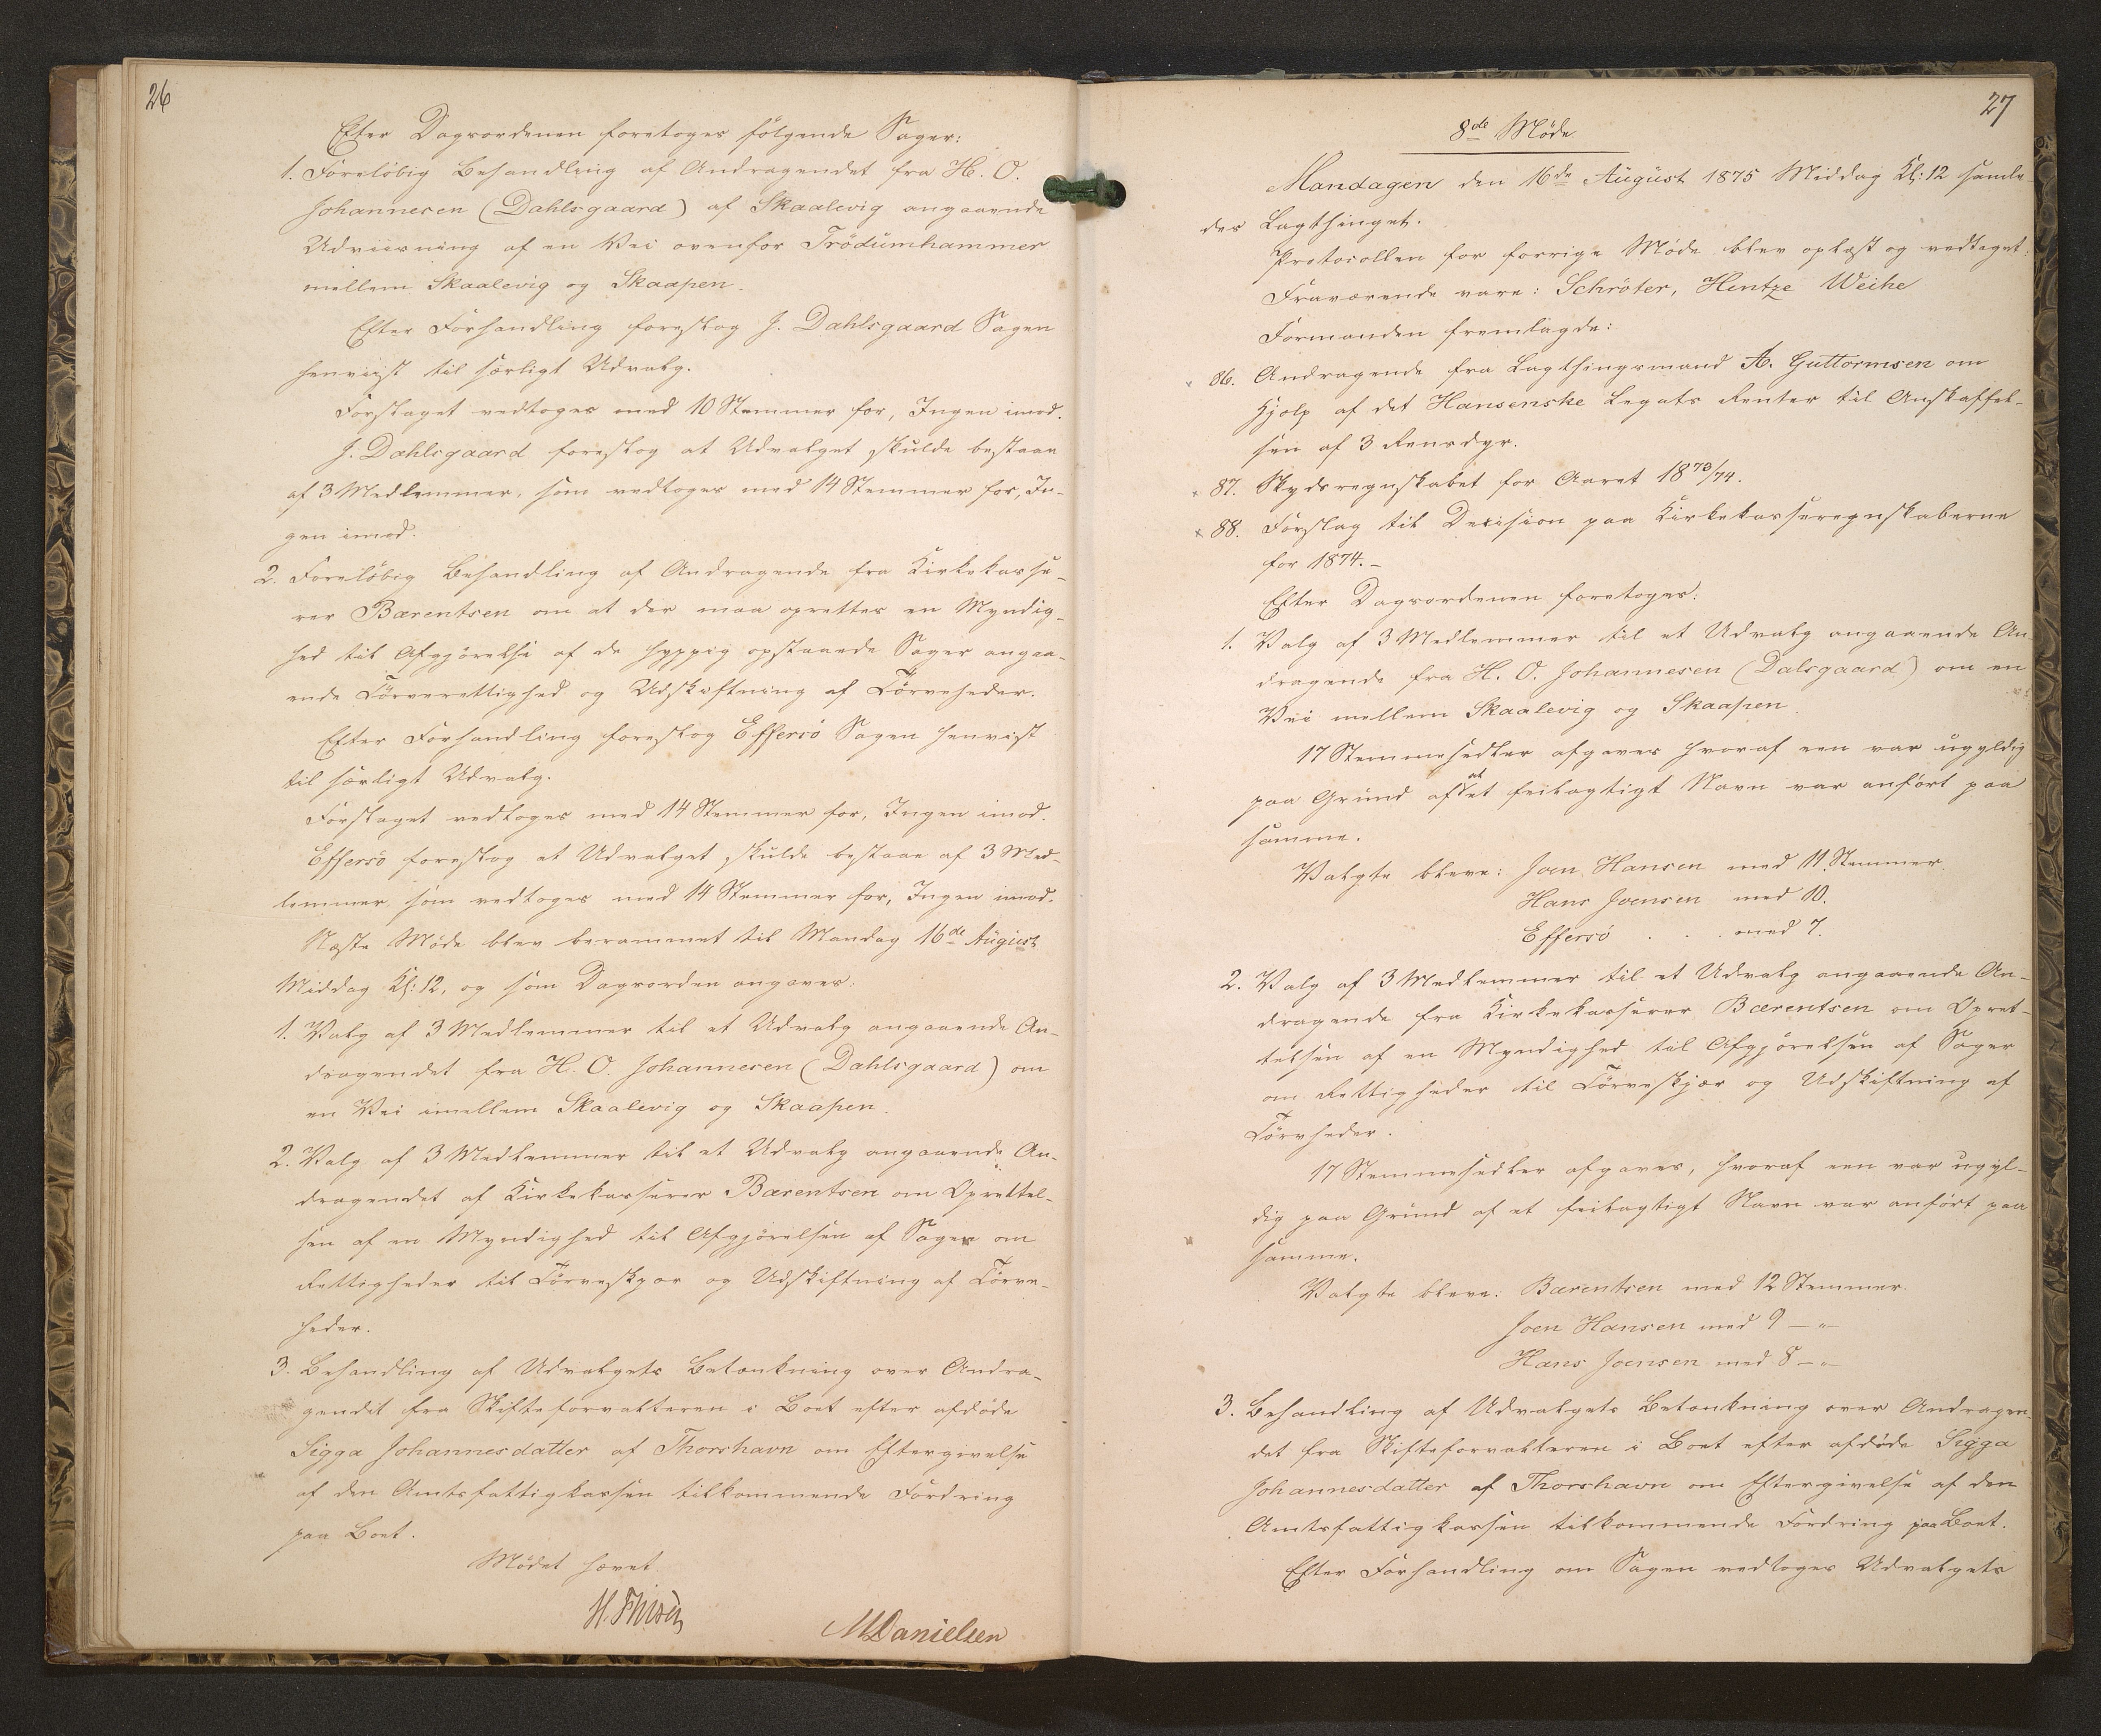 26
Efter Dagsordenen foretoges følgende Sager:
1. Foreløbig Behandling af Andragendet fra H. O.
Johannesen (Dahlsgaard) af Skaalevig angaaende
Udviisning af en Vei ovenfor Trödumhammer
mellem Skaalevig og Skaapen.
Efter Forhandling foreslog J. Dahlsgaard Sagen
henviist til særligt Udvalg.
Forslaget vedtoges med 10 Stemmer for, Ingen imod.
J. Dahlsgaard foreslog at Udvalget skulde bestaae
af 3 Medlemmer, som vedtoges med 14 Stemmer for, In-
gen imod.
2. Foreløbig Behandling af Andragende fra Kirkekasse-
rer Bærentsen om at der maa oprettes en Myndig-
hed til Afgjørelse af de hyppig opstaaede Sager angaa-
ende Tørverettighed og Udskiftning af Tørveheder.
Efter Forhandling foreslog Effersö Sagen henvist
til særligt Udvalg.
Forslaget vedtoges med 14 Stemmer for, Ingen imod.
Effersö foreslog at Udvalget skulde bestaae af 3 Med-
lemmer, som vedtoges med 14 Stemmer for, Ingen imod.
Næste Møde blev berammet til Mandag 16de August
Middag Kl: 12, og som Dagsorden angaves:
1. Valg af 3 Medlemmer til et Udvalg angaaende An-
dragendet fra H. O. Johannesen (Dahlsgaard) om
en Vei imellem Skaalevig og Skaapen.
2. Valg af 3 Medlemmer til et Udvalg angaaende An-
dragendet af Kirkekasserer Bærentsen om Oprettel-
sen af en Myndighed til Afgjørelsen af Sager om
Rettigheder til Tørveskjær og Udskiftning af Tørve-
heder.
3. Behandling af Udvalgets Betænkning over Andra-
gendet fra Skifteforvalteren i Boet efter afdøde
Sigga Johannesdatter af Thorshavn om Eftergivelse
af den Amtsfattigkassen tilkommende Fordring
paa Boet.
Mødet hævet.
MDanielsen
27
8de Møde
Mandagen den 16de August 1875 Middag Kl: 12 samle-
des Lagthinget.
Protocollen for forrige Møde blev oplæst og vedtaget.
Fraværende vare: Schröter, Hentze Weihe
Formanden fremlagde:
86. Andragende fra Lagthingsmand A. Guttormsen om
Hjelp af det Hansenske Legats Renter til Anskaffel-
sen af 3 Rensdyr.
87. Skydsregnskabet for Aaret 1873/74.
88. Forslag til Decision paa Kirkekasseregnskaberne
for 1874.
Efter Dagsordenen foretoges:
1. Valg af 3 Medlemmer til et Udvalg angaaende An-
dragende fra H. O. Johannesen (Dalsgaard) om en
Vei mellem Skaalevig og Skaapen.
17 Stemmesedler afgaves hvoraf een var ugyldig
paa Grund af at et feilagtigt Navn var anført paa
samme.
Valgte bleve: Joen Hansen med 11 Stemmer
Hans Joensen med 10.
Effersö . . . med 7.
2. Valg af 3 Medlemmer til et Udvalg angaaende An-
dragende fra Kirkekasserer Bærentsen om Opret-
telsen af en Myndighed til Afgjørelsen af Sager
om Rettigheder til Tørveskjær og Udskiftning af
Tørvheder.
17 Stemmesedler afgaves, hvoraf een var ugyl-
dig paa Grund af et feilagtigt Navn var anført paa
samme.
Valgte bleve: Bærentsen med 12 Stemmer.
Joen Hansen med 9 — "
Hans Joensen med 8 — "
3. Behandling af Udvalgets Betænkning over Andragen-
det fra Skifteforvalteren i Boet efter afdøde Sigga
Johannesdatter af Thorshavn om Eftergivelse af den
Amtsfattigkassen tilkommende Fordring paa Boet.
Efter Forhandling om Sagen vedtoges Udvalgets